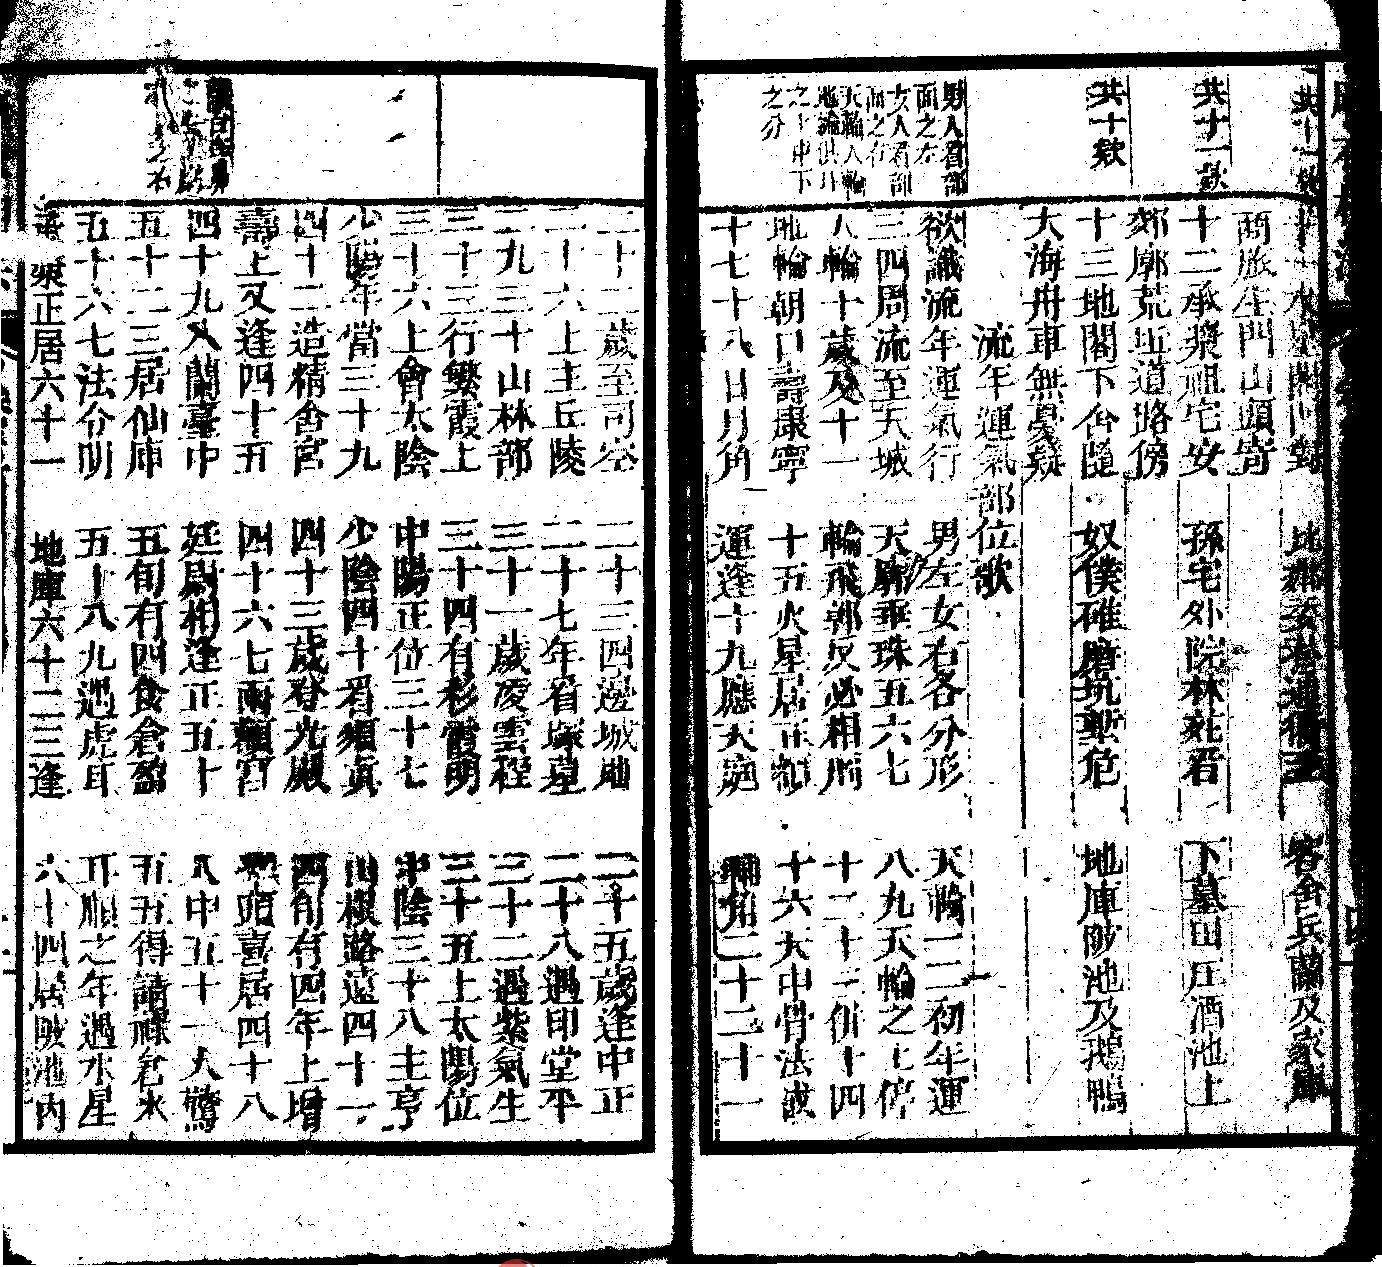 共十一款
十一水星閣門對
地郡委巷通衢至
客舍兵蘭及家庫
商旅生門山頭寄
共十一款
十二承漿祖宅安
孫宅外院林苑看
下墓田庄酒池上
郊廓荒坵道路傍
共十款
十三地閣下舍隨
奴僕碓磨坑塹危
地庫陂池及鵝鴨
大海舟車無憂疑
流年運氣部位歌
男人看部
面之左
女人看部
面之右
天輪人輪
地輪俱耳
之上中下
之分
欲識流年運氣行
男左女右各分形
天輪一二初年運
三四周流至天城
天廓垂珠五六七
八九天輪之上停
人輪十歲及十一
輪飛郭反必相刑
十二十三併十四
地輪朝口壽康寧
十五火星居正額
十六天中骨法成
十七十八日月角
運逢十九應天庭
輔角二十二十一
二十二歲至司空
二十三四邊城地
二十五歲逢中正
二十六上主丘陵
二十七年看塚墓
二十八遇印堂平
二九三十山林部
三十一歲凌雲程
三十二遇紫氣生
三十三行繁霞上
三十四有彩霞明
三十五上太陽位
三十六上會太陰
中陽正位三十七
中陰三十八主亨
少陽年當三十九
少陰四十看須真
山根路遠四十一
四十二造精舍宮
四十三歲登光殿
四旬有四年上增
壽上又逢四十五
四十六七兩顴宮
準頭喜居四十八
四十九入蘭臺中
廷尉相逢正五十
人中五十一人驚
五十二三居仙庫
五旬有四食倉盈
五五得請祿倉米
五十六七法令明
五十八九遇虎耳
耳順之年遇水星
承漿正居六十一
地庫六十二三逢
六十四居陂池內